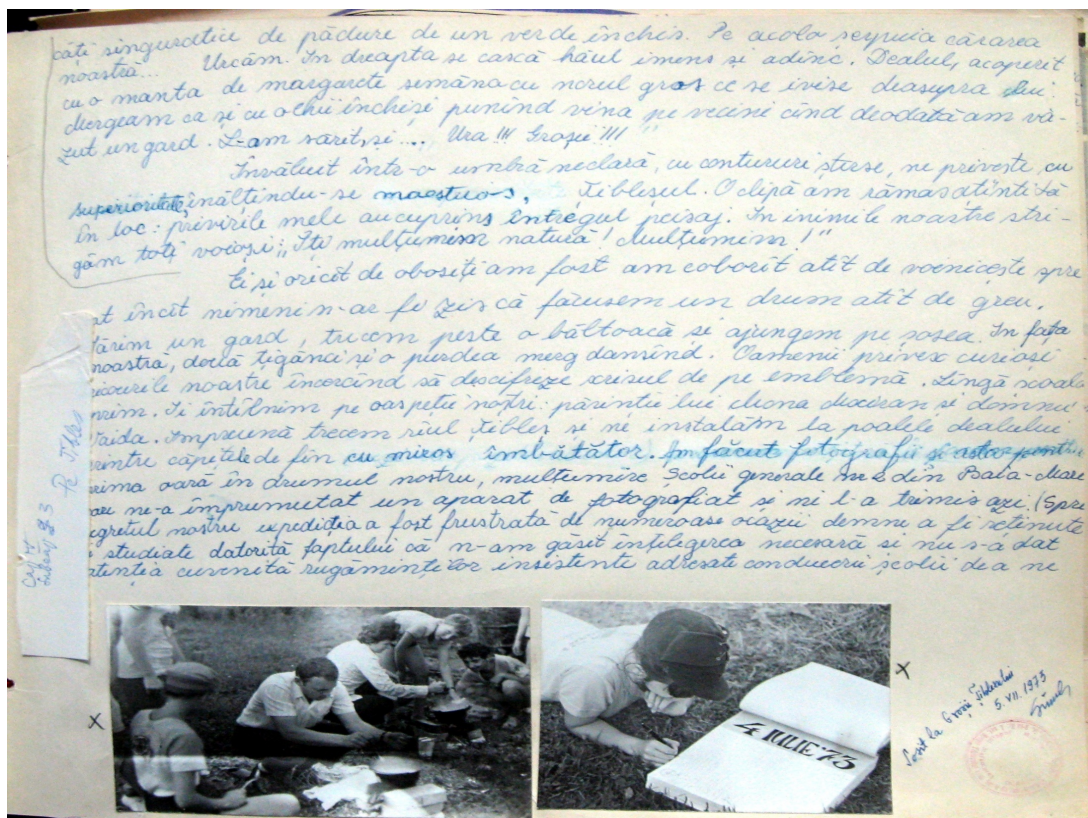 căți singuratice de pădure de un verde închis. Pe acolo șerpuia cărarea
noastră... Urcăm. In dreapta se cască hăul imens și adînc. Dealul, acoperit
cu o manta de margarete semăna cu norul gros ce se ivise deasupra lui.
Mergeam ca și cu ochii închiși punînd vina pe vecini cînd deodată am vă-
zut un gard. L-am sărit, și.... „Ura!!! Groșii!!!"
Învăluit într-o umbră neclară, cu contururi șterse, ne privește, cu
superioritate, înălțindu-se maestuos, Țibleșul. O clipă am rămas atintită
în loc: privirile mele au cuprins întregul peisaj. In inimile noastre stri-
găm toți voioși: „Iți mulțumim natură! Mulțumim!"
Ei și oricît de obosiți am fost am coborît atît de voinicește spre
at încît nimeni n-ar fi zis că făcusem un drum atît de greu.
Sărim un gard, trecem peste o băltoacă și ajungem pe șosea. In fața
noastră, două țigănci și o purdea merg dansînd. Oamenii privesc curioși
încercînd să descifreze scrisul de pe emblemă. Lîngă școală
oprim. Ii întîlnim pe oaspeții noștri: părinții lui Mona și domnul
Vaida. Impreună trecem rîul Țibleș și ne instalăm la poalele dealului
printre căpițele de fîn cu miros îmbătător. Am făcut fotografii și asta pentru
prima oară în drumul nostru, mulțumire Școlii generale nr 2 din Baia-Mare
care ne-a împrumutat un aparat de fotografiat și ni l-a trimis azi. (Spre
regretul nostru expediția a fost frustrată de numeroase ocazii demne a fi reținute
și studiate datorită faptului că n-am găsit înțelegerea necesară și nu s-a dat
atenția cuvenită rugăminților insistente adresate conducerii școlii de a ne
X
4 IULIE '73
X
Sosit la Groșii Țibleșului
5.VII.1973